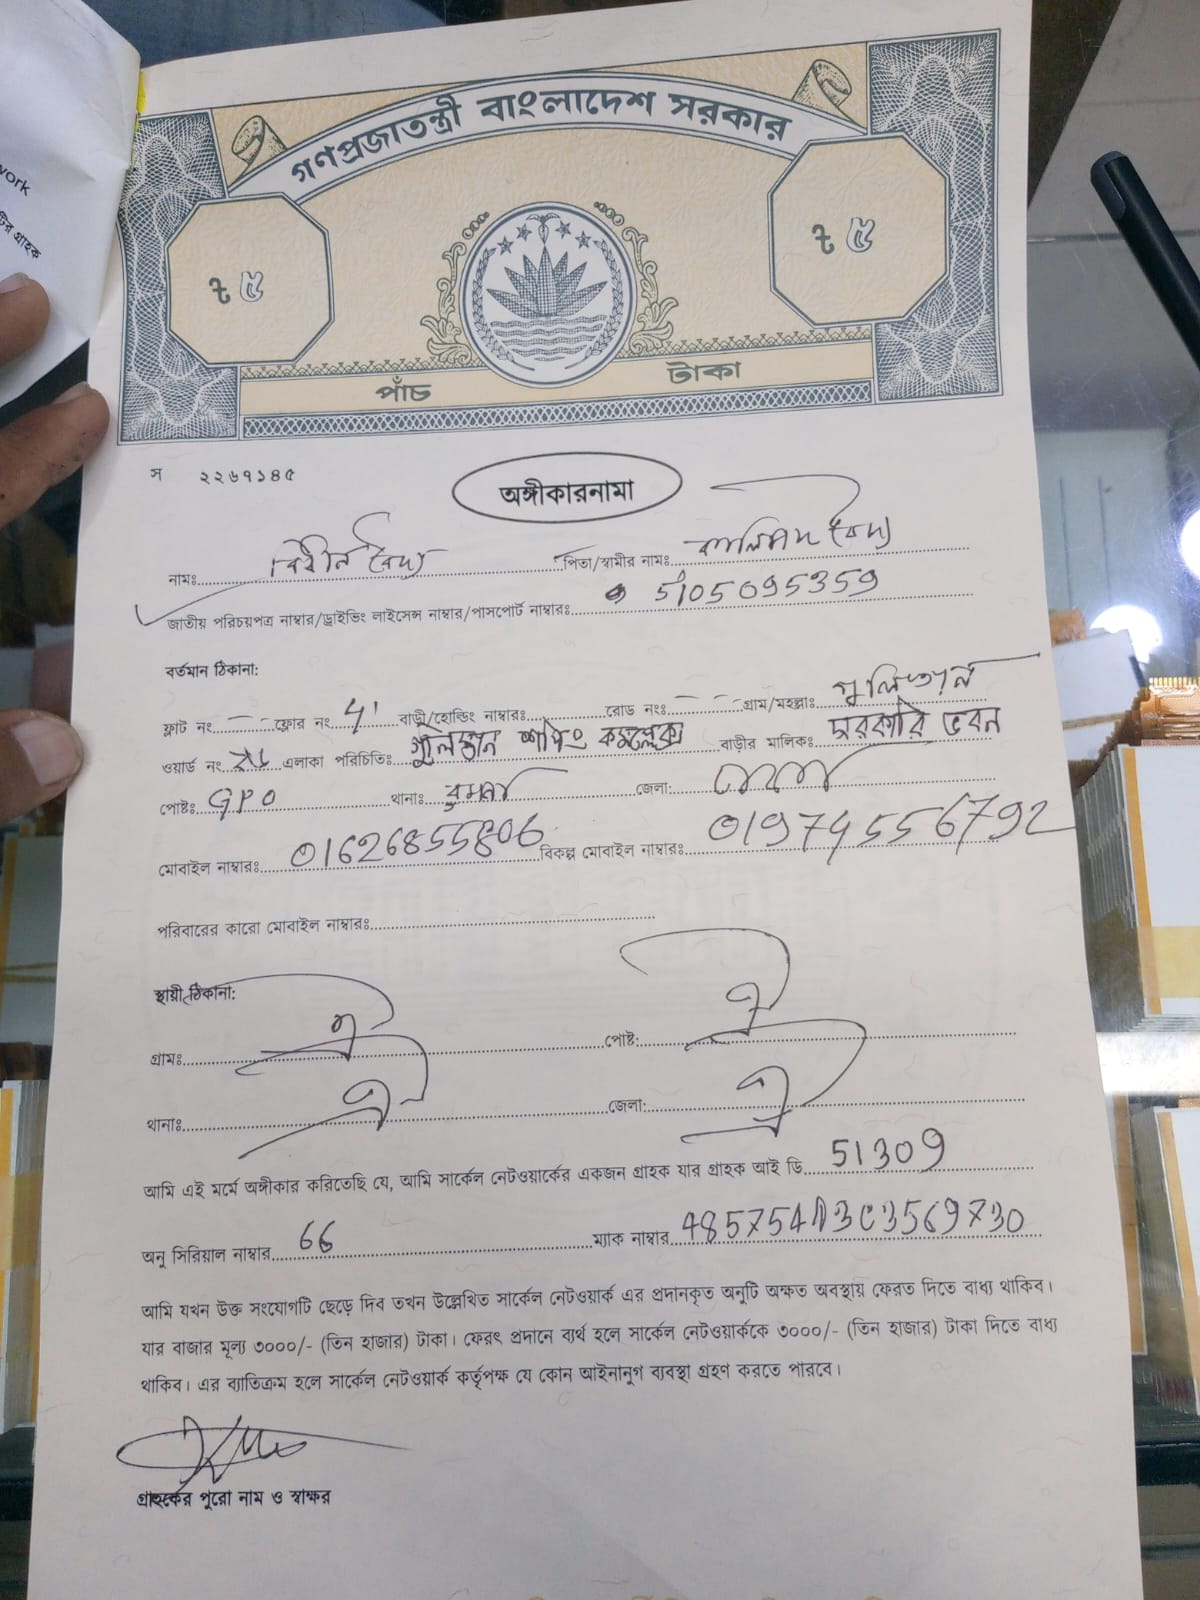 work
টির গ্রাহক
গণপ্রজাতন্ত্রী বাংলাদেশ সরকার
৳ ৫
৳ ৫
পাঁচ টাকা
স ২২৬৭১৪৫
অঙ্গীকারনামা
নামঃ বৈদ্য পিতা/স্বামীর নামঃ কালিপদ বৈদ্য
জাতীয় পরিচয়পত্র নাম্বার/ড্রাইভিং লাইসেন্স নাম্বার/পাসপোর্ট নাম্বারঃ 5105095359
বর্তমান ঠিকানা:
ফ্লাট নং ফ্লোর নং 4 বাড়ী/হোল্ডিং নাম্বারঃ রোড নংঃ গ্রাম/মহল্লাঃ গুলিস্তান
ওয়ার্ড নং এলাকা পরিচিতিঃ গুলিস্তান শপিং কমপ্লেক্স বাড়ীর মালিকঃ সরকারি ভবন
পোষ্টঃ GPO থানাঃ রমনা জেলা: ঢাকা
মোবাইল নাম্বারঃ 01626855806 বিকল্প মোবাইল নাম্বারঃ
পরিবারের কারো মোবাইল নাম্বারঃ
স্থায়ী ঠিকানা:
গ্রামঃ ঐ পোষ্ট: ঐ
থানাঃ ঐ জেলা: ঐ
আমি এই মর্মে অঙ্গীকার করিতেছি যে, আমি সার্কেল নেটওয়ার্কের একজন গ্রাহক যার গ্রাহক আই ডি 51309
অনু সিরিয়াল নাম্বার 66 ম্যাক নাম্বার 485754A3C3569730
আমি যখন উক্ত সংযোগটি ছেড়ে দিব তখন উল্লেখিত সার্কেল নেটওয়ার্ক এর প্রদানকৃত অনুটি অক্ষত অবস্থায় ফেরত দিতে বাধ্য থাকিব।
যার বাজার মূল্য ৩০০০/- (তিন হাজার) টাকা। ফেরৎ প্রদানে ব্যর্থ হলে সার্কেল নেটওয়ার্ককে ৩০০০/- (তিন হাজার) টাকা দিতে বাধ্য
থাকিব। এর ব্যাতিক্রম হলে সার্কেল নেটওয়ার্ক কর্তৃপক্ষ যে কোন আইনানুগ ব্যবস্থা গ্রহণ করতে পারবে।
গ্রাহকের পুরো নাম ও স্বাক্ষর